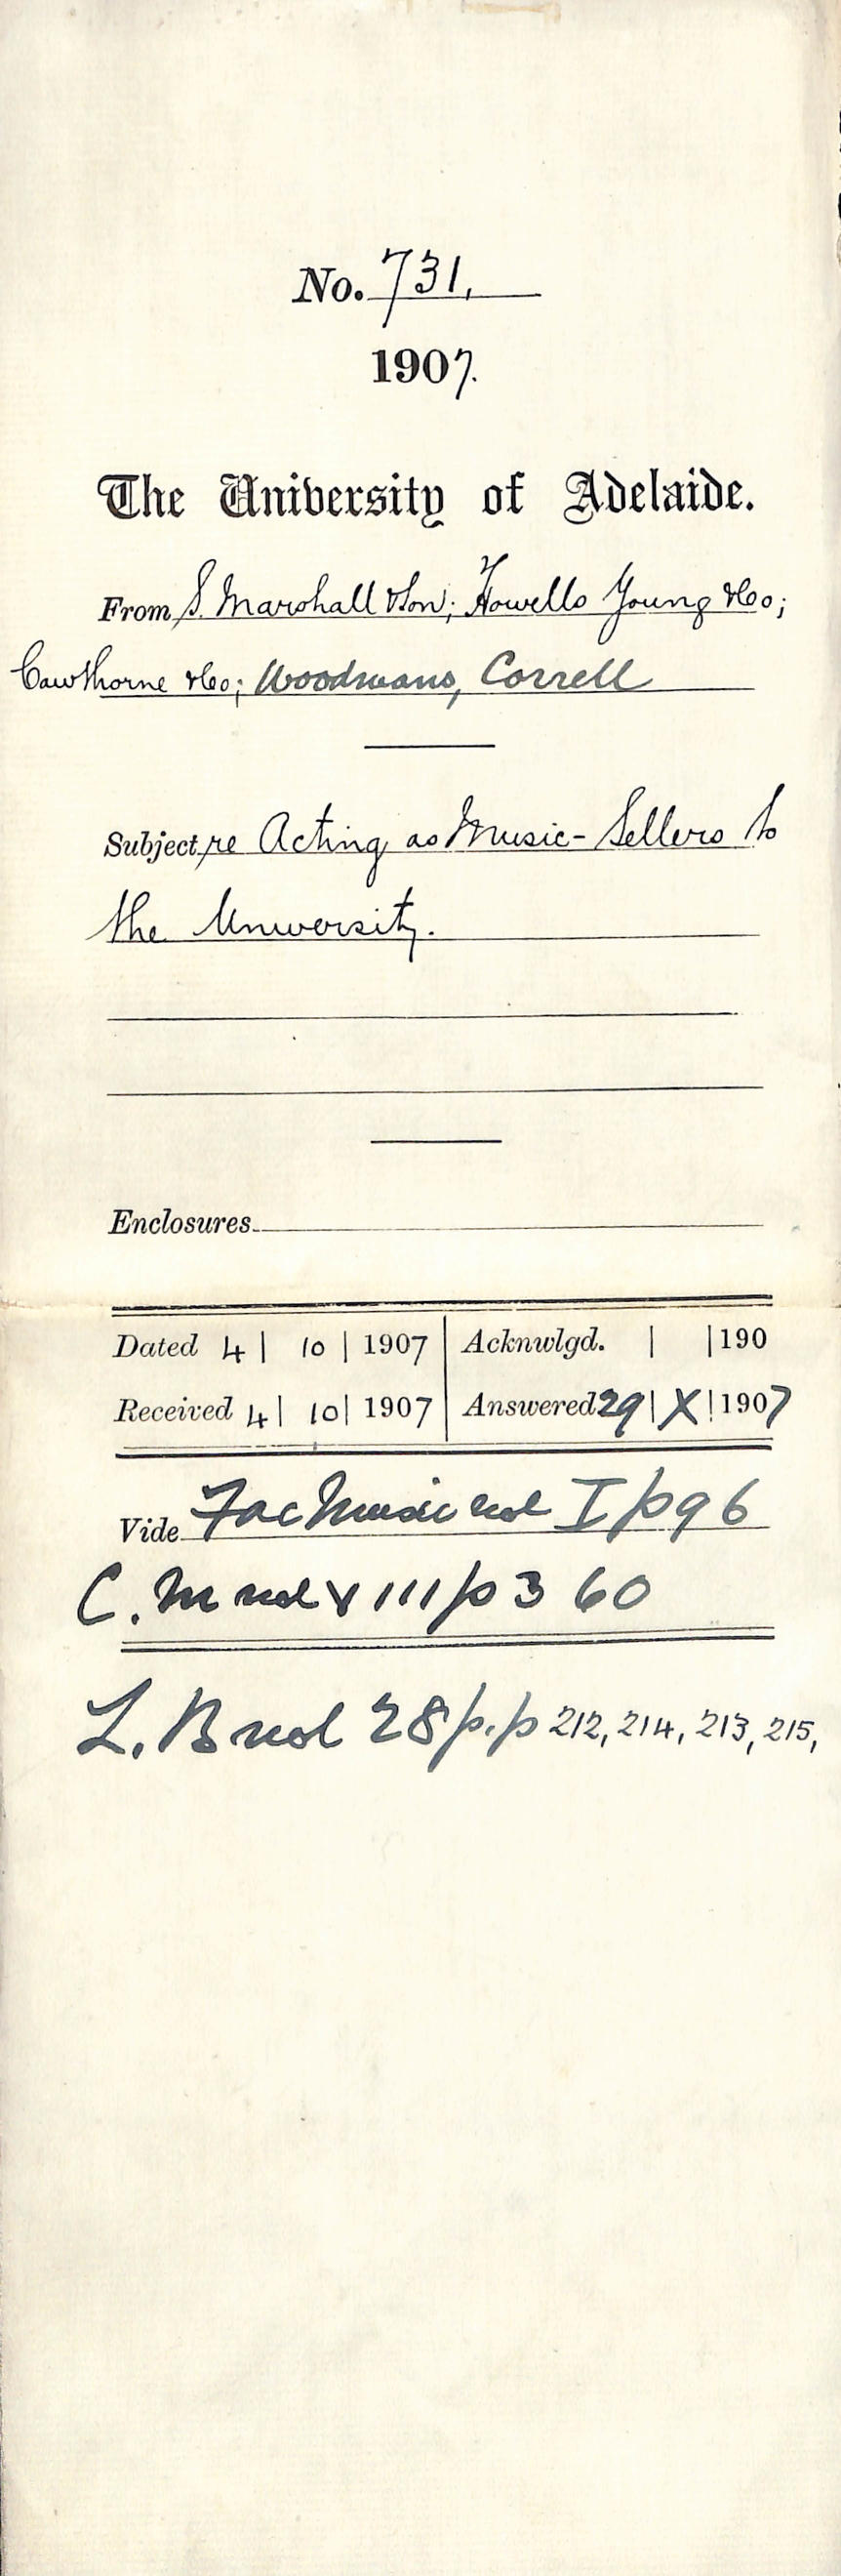 No. 731.
1907.
The University of Adelaide.
From S. Marshall & Son; Howells Young & Co;
Cawthorne & Co; Woodmans, Correll
Subject re Acting as Music-Sellers to
the University.
Enclosures
Dated 4 | 10 | 1907 Acknwlgd. | | 190
Received 4 | 10 | 1907 Answered 29 | X | 1907
Vide Fac Music vol I p 96
C. M vol VIII p 360
L. B vol 28 p.p 212, 214, 213, 215,